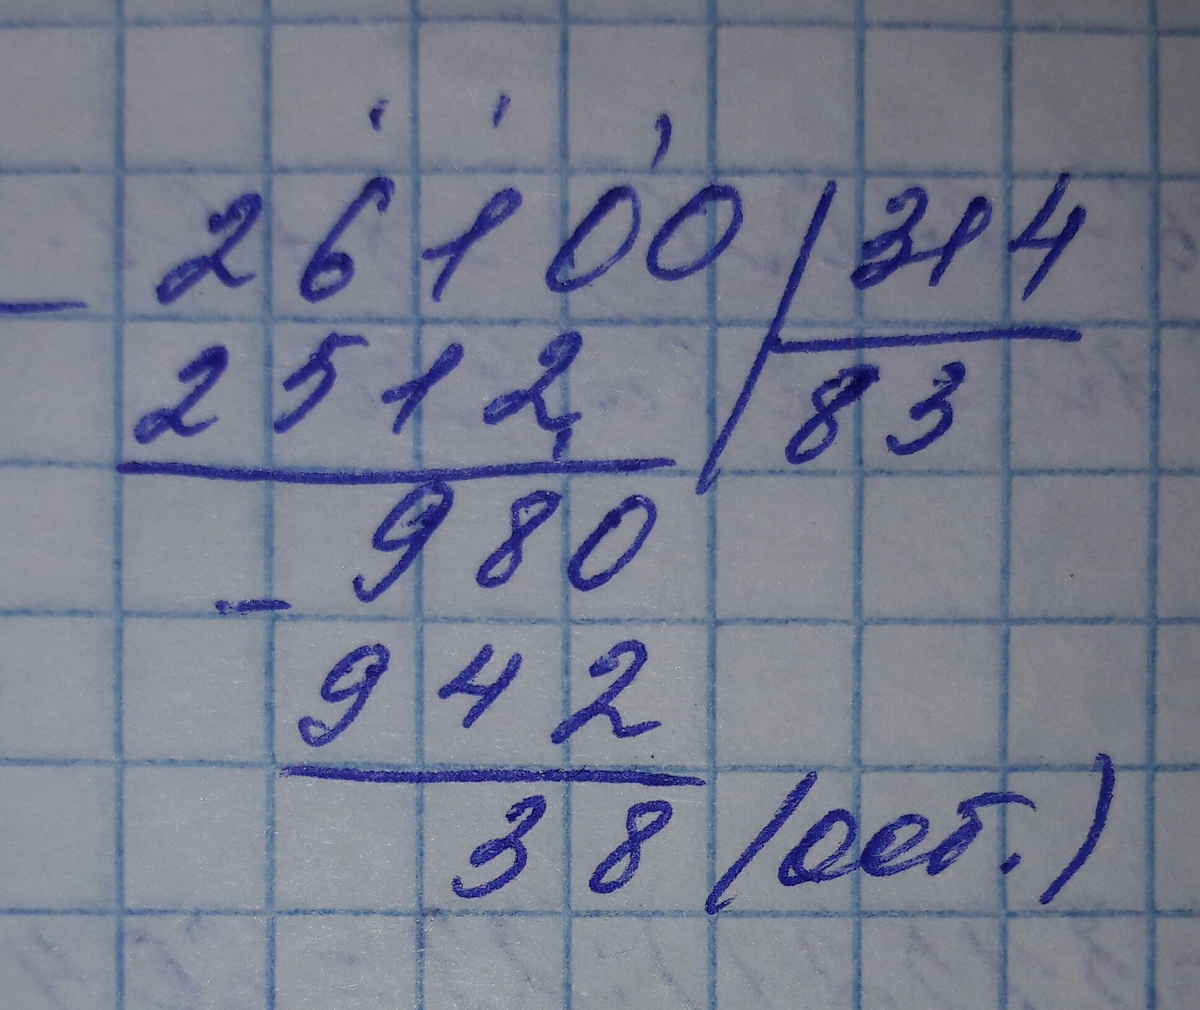 26100 314
- 2512 83
980
- 942
38 (ост.)